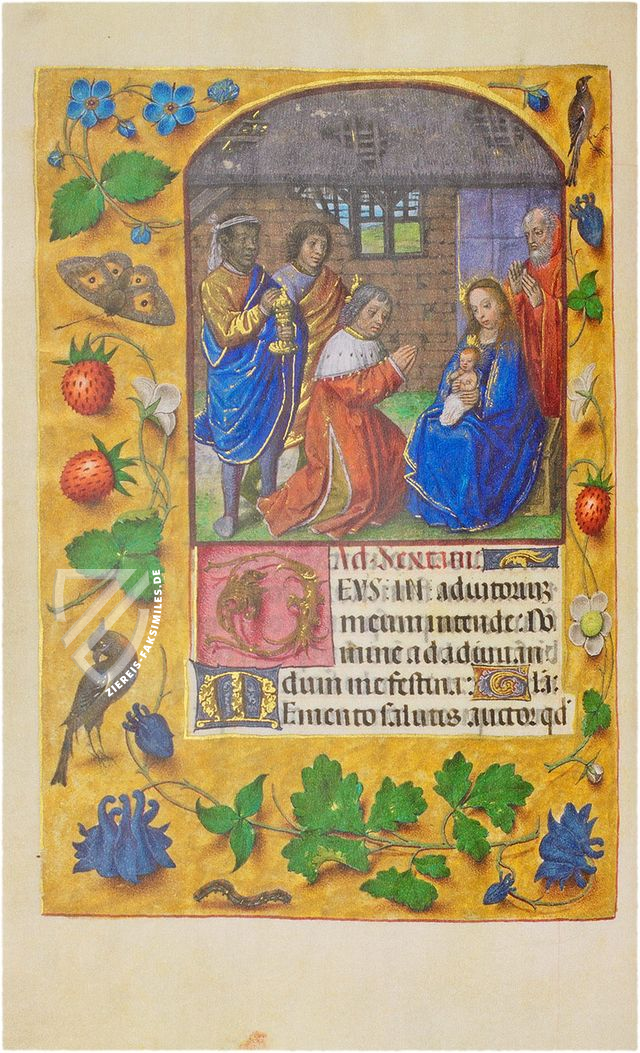 Ad Sextam
DEUS IN adiutorium
meum intende: Do
mine ad adiuuan
dum me festina: Gla:
Memento salutis auctor qd
ZIEREIS-FAKSIMILES.DE